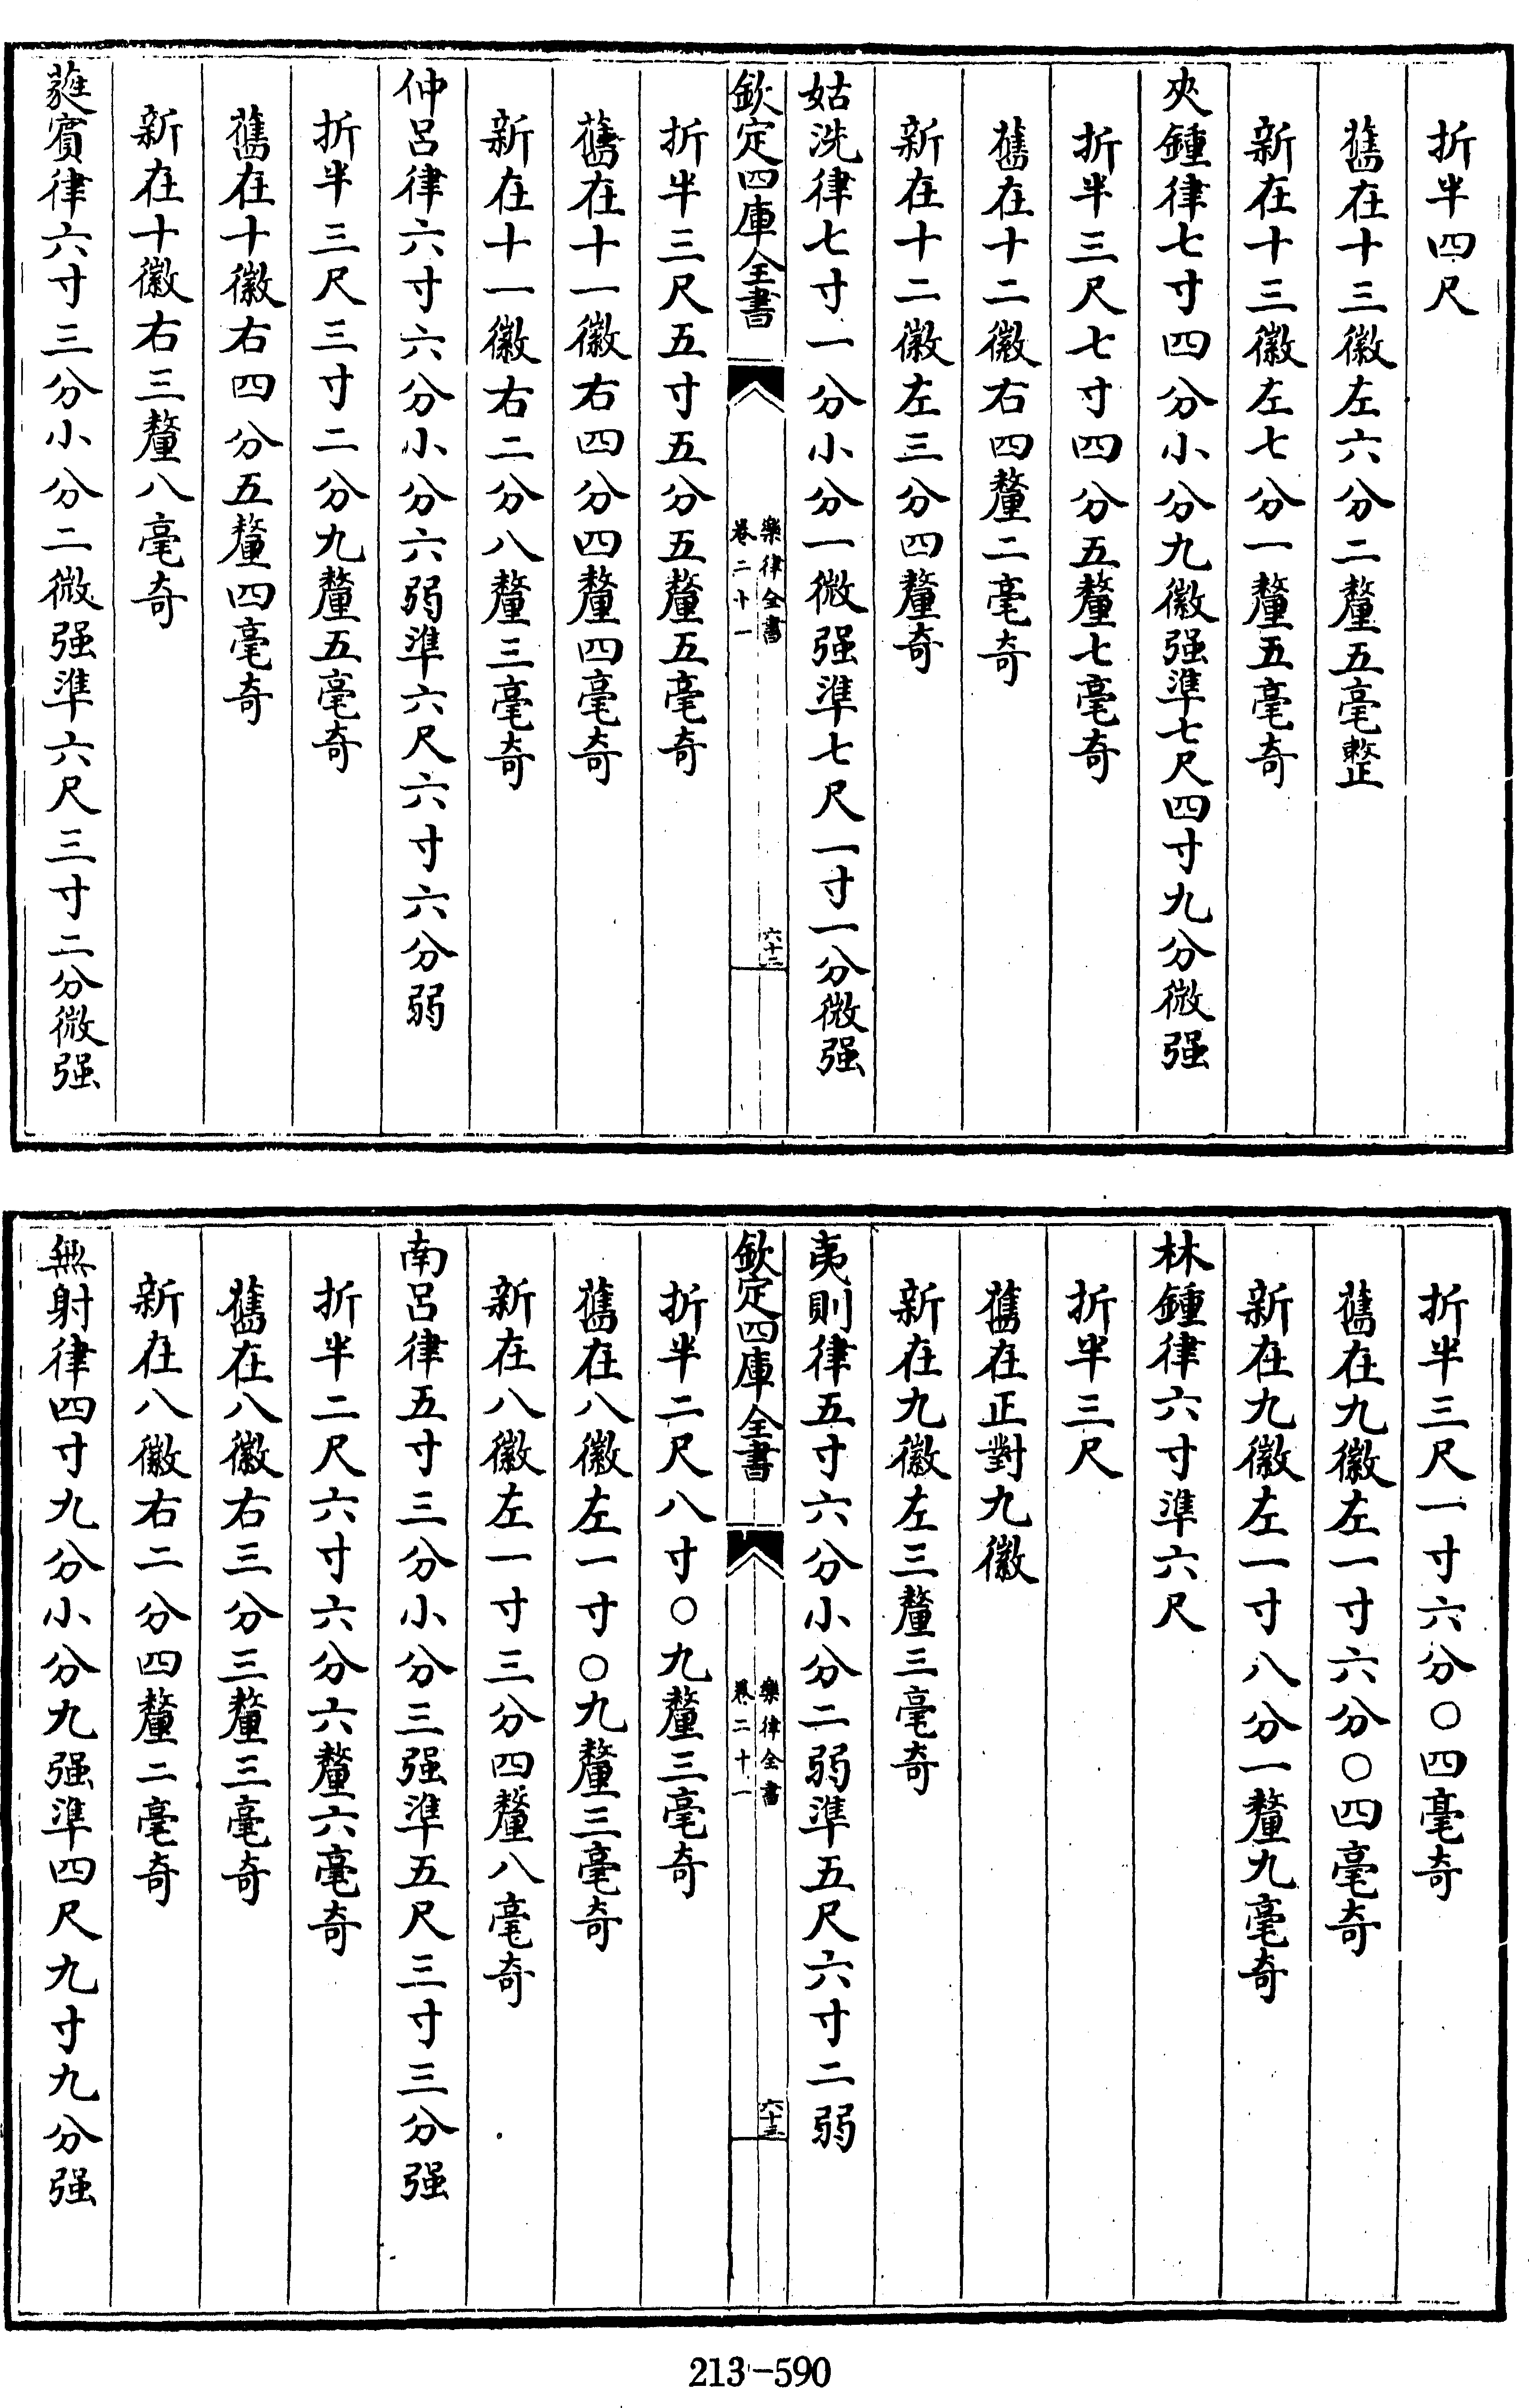 折半四尺
舊在十三徽左六分二釐五毫整
新在十三徽左七分一釐五毫奇
夾鍾律七寸四分小分九微强準七尺四寸九分微强
折半三尺七寸四分五釐七毫奇
舊在十二徽右四釐二毫奇
新在十二徽左三分四釐奇
姑洗律七寸一分小分一微强準七尺一寸一分微强
欽定四庫全書
樂律全書
卷二十一
六十二
折半三尺五寸五分五釐五毫奇
舊在十一徽右四分四釐四毫奇
新在十一徽右二分八釐三毫奇
仲呂律六寸六分小分六弱準六尺六寸六分弱
折半三尺三寸二分九釐五毫奇
舊在十徽右四分五釐四毫奇
新在十徽右三釐八毫奇
蕤賓律六寸三分小分二微强準六尺三寸二分微强
折半三尺一寸六分〇四毫奇
舊在九徽左一寸六分〇四毫奇
新在九徽左一寸八分一釐九毫奇
林鍾律六寸準六尺
折半三尺
舊在正對九徽
新在九徽左三釐三毫奇
夷則律五寸六分小分二弱準五尺六寸二弱
欽定四庫全書
樂律全書
卷二十一
六十三
折半二尺八寸〇九釐三毫奇
舊在八徽左一寸〇九釐三毫奇
新在八徽左一寸三分四釐八毫奇
南呂律五寸三分小分三强準五尺三寸三分强
折半二尺六寸六分六釐六毫奇
舊在八徽右三分三釐三毫奇
新在八徽右二分四釐二毫奇
無射律四寸九分小分九强準四尺九寸九分强
213-590